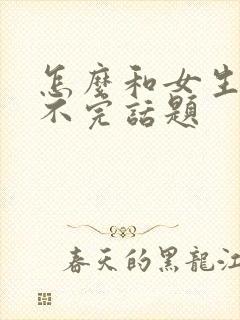 怎麼和女生
不完話題
春天的黑龍江